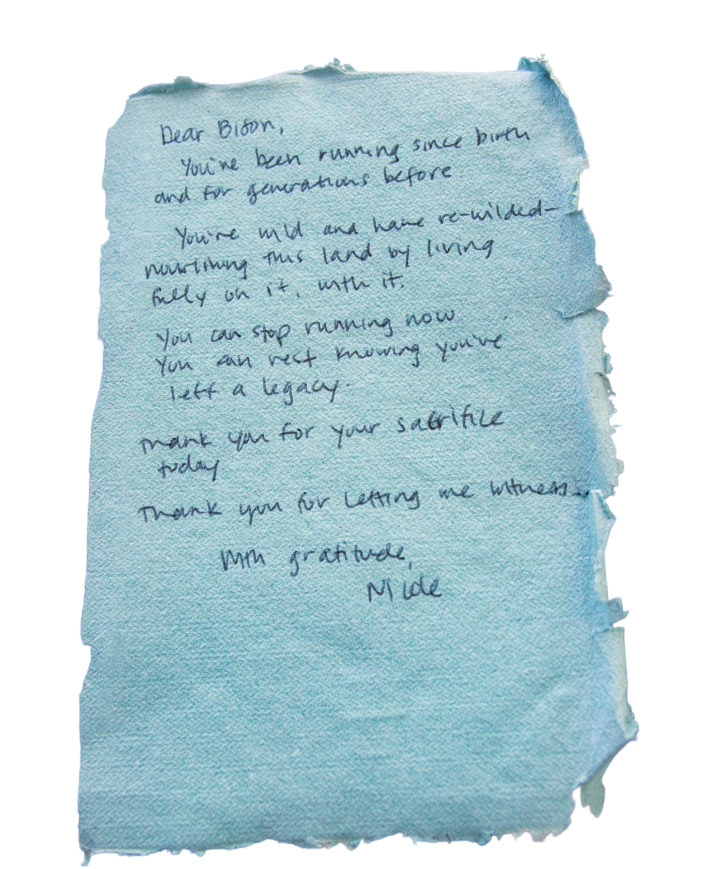 Dear Bison,
You've been running since birth
and for generations before
You're wild and have re-wilded—
nourishing this land by living
fully on it, with it.
You can stop running now
You can rest knowing you've
left a legacy.
Thank you for your sacrifice
today
Thank you for letting me witness...
With gratitude,
Nicole